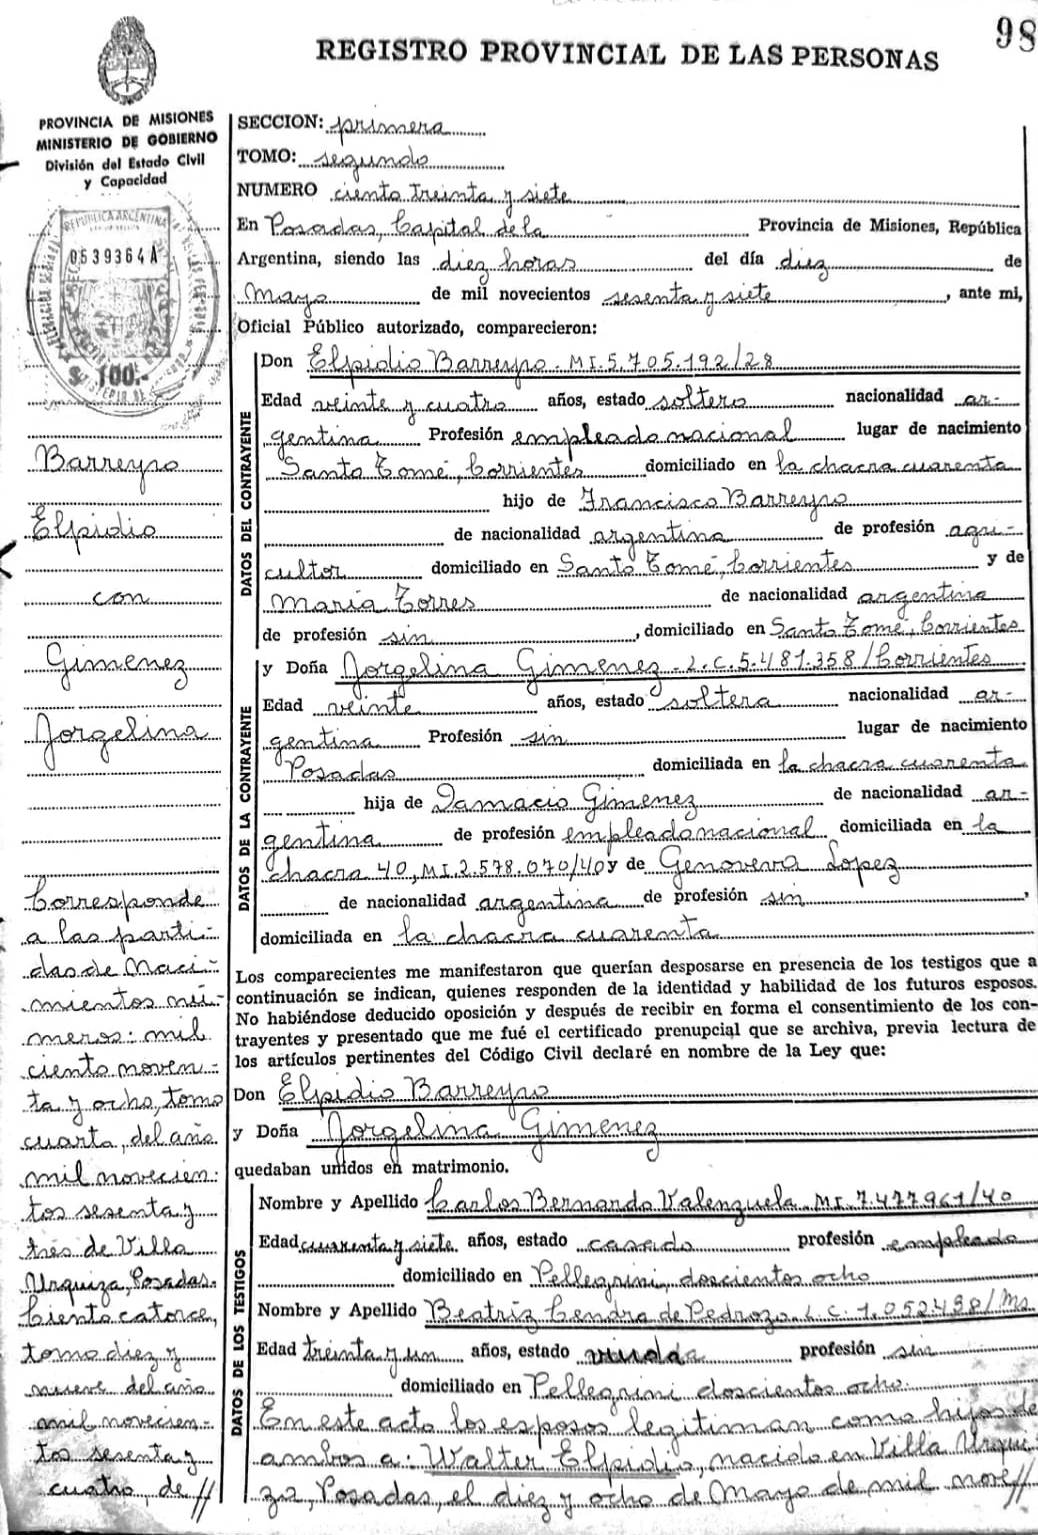 98
REGISTRO PROVINCIAL DE LAS PERSONAS
PROVINCIA DE MISIONES
MINISTERIO DE GOBIERNO
División del Estado Civil
y Capacidad
REPUBLICA ARGENTINA
0539364 A
$ 100.-
Barreyro
Elpidio
con
Gimenez
Jorgelina
Corresponde
a las parti-
das de Naci-
mientos nú-
meros: mil
ciento noven-
ta y ocho, tomo
cuarto, del año
mil novecien-
tos sesenta y
tres de Villa
Urquiza, Posadas.
Ciento catorce,
tomo diez y
nueve del año
mil novecien-
tos sesenta y
cuatro, de //
SECCION: primera
TOMO: segundo
NUMERO ciento treinta y siete
En Posadas, Capital de la Provincia de Misiones, República
Argentina, siendo las diez horas del día diez de
Mayo de mil novecientos sesenta y siete, ante mi,
Oficial Público autorizado, comparecieron:
DATOS DEL CONTRAYENTE
Don Elpidio Barreyro. MI. 5.705.192/28
Edad veinte y cuatro años, estado soltero nacionalidad ar-
gentina Profesión empleado nacional lugar de nacimiento
Santo Tomé, Corrientes domiciliado en la chacra cuarenta
hijo de Francisco Barreyro
de nacionalidad argentina de profesión agri-
cultor domiciliado en Santo Tomé, Corrientes y de
María Torres de nacionalidad argentina
de profesión sin, domiciliado en Santo Tomé, Corrientes
DATOS DE LA CONTRAYENTE
y Doña Jorgelina Gimenez - L.C. 5.481.358/Corrientes
Edad veinte años, estado soltera nacionalidad ar-
gentina Profesión sin lugar de nacimiento
Posadas domiciliada en la chacra cuarenta
hija de Damacio Gimenez de nacionalidad ar-
gentina de profesión empleado nacional domiciliada en la
chacra 40, MI. 2.578.070/40 y de Genoveva Lopez
de nacionalidad argentina de profesión sin,
domiciliada en la chacra cuarenta
Los comparecientes me manifestaron que querían desposarse en presencia de los testigos que a
continuación se indican, quienes responden de la identidad y habilidad de los futuros esposos.
No habiéndose deducido oposición y después de recibir en forma el consentimiento de los con-
trayentes y presentado que me fué el certificado prenupcial que se archiva, previa lectura de
los artículos pertinentes del Código Civil declaré en nombre de la Ley que:
Don Elpidio Barreyro
y Doña Jorgelina Gimenez
quedaban unidos en matrimonio.
DATOS DE LOS TESTIGOS
Nombre y Apellido Carlos Bernardo Valenzuela. MI. 7.477961/40
Edad cuarenta y siete años, estado casado profesión empleado
domiciliado en Pellegrini, doscientos ocho
Nombre y Apellido Beatriz Cendra de Pedrozo. L.C. 1.052498/Ms.
Edad treinta y un años, estado viuda profesión sin
domiciliado en Pellegrini doscientos ocho.
En este acto los esposos legitiman como hijos de
ambos a: Walter Elpidio, nacido en Villa Urqui-
za, Posadas, el diez y ocho de Mayo de mil nove//